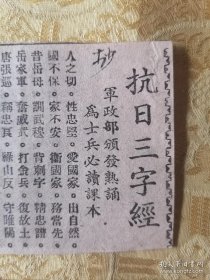 抗日三字經
軍政部頒發熱誦
為士兵必讀課本．
抄
人之初・性忠堅・愛國家・出自然・
國不保・家不安・衛國家・務當先・
昔岳母・訓武穆・背刺字・精忠譜・
岳家軍・奮威武・打金兵・復故土・
唐張巡・稱忠良・祿山反・守睢陽・